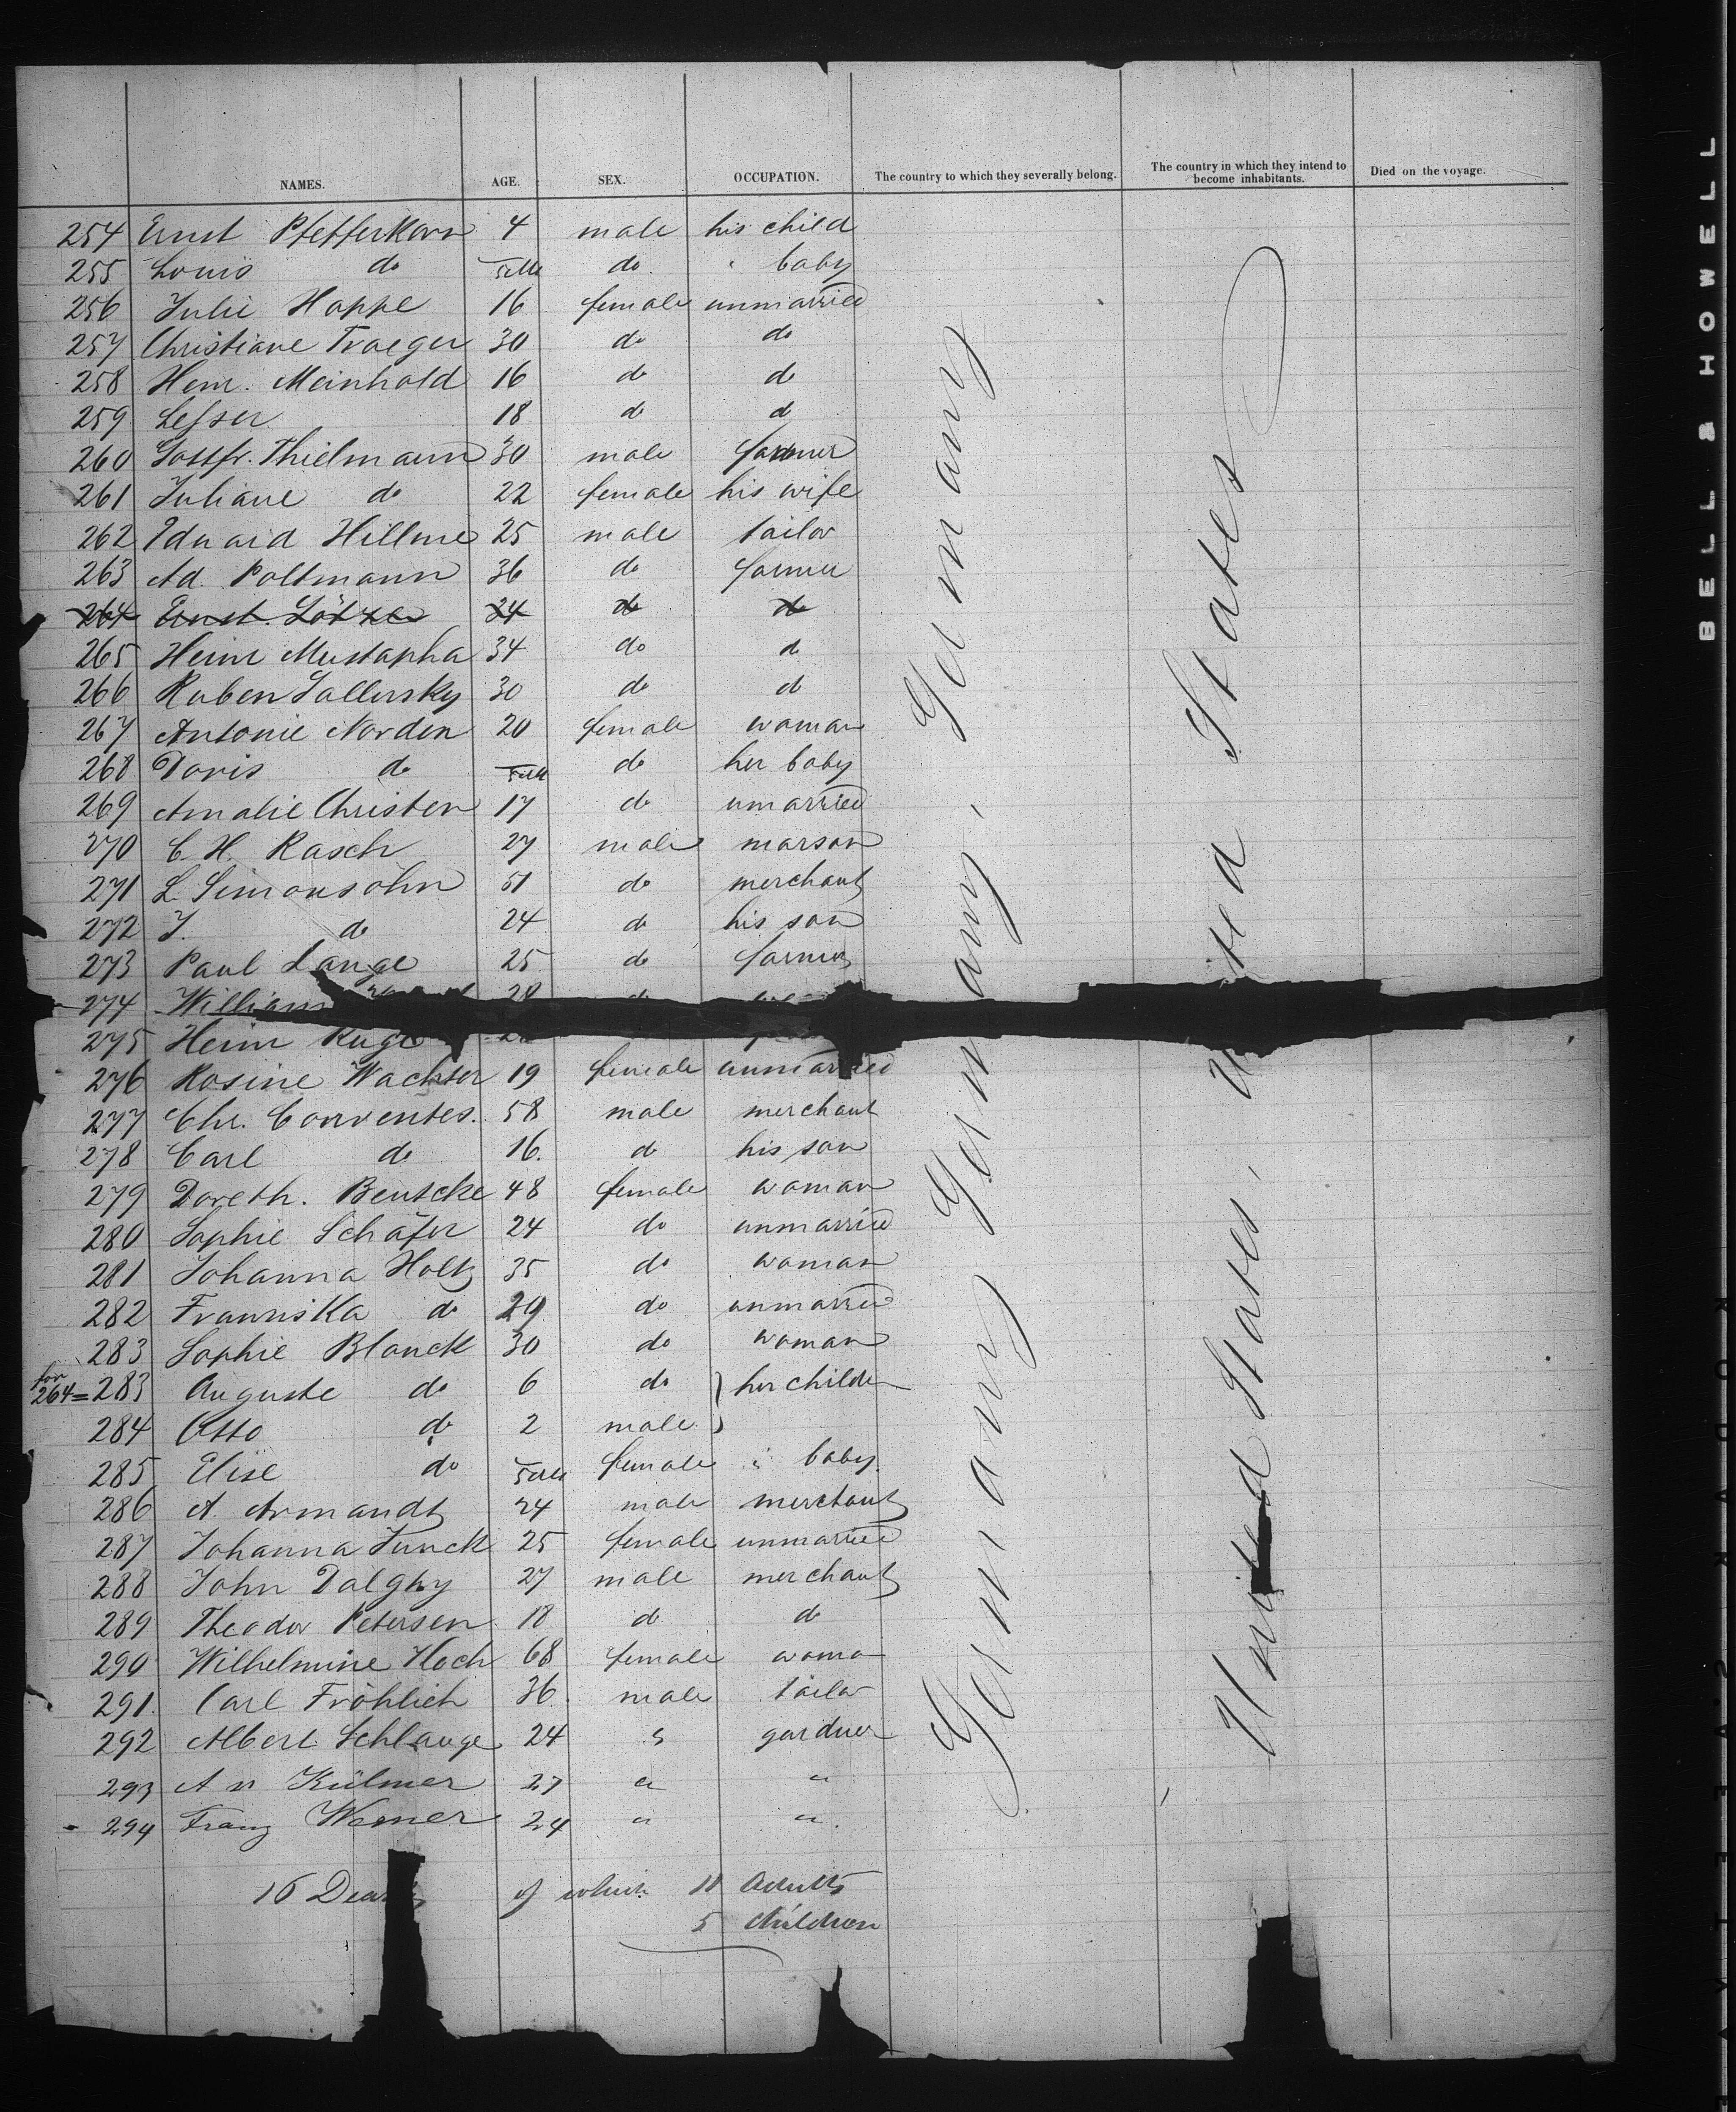 NAMES. AGE. SEX. OCCUPATION. The country to which they severally belong. The country in which they intend to become inhabitants. Died on the voyage.
254 Ernst Pfefferkorn 4 male his child
255 Louis do do. " baby
256 Julie Hoppe 16 female unmarried
257 Christiane Traeger 30 do do
258 Henr. Meinhold 16 do do
259 Lesser 18 do d
260 Gottfr. Thielmann 30 male farmer
261 Juliane do 22 female his wife
262 Eduard Hillme 25 male tailor
263 Ad. Poltmann 36 do farmer
264 Ernst Götze 24 do do
265 Heinr Mustapha 34 do d
266 Ruben Sallersky 30 do d
267 Antonie Norden 20 female woman
268 Doris do do her baby
269 Amalie Christen 17 do unmarried
270 C. H. Rasch 27 male marson
271 L. Simonsohn 51 do merchant
272 J. do 24 do his son
273 Paul Lange 25 do farmer
274 William 28
275 Heinr Ruge
276 Rosine Wachter 19 female unmarried
277 Chr. Conventes. 58 male merchant
278 Carl do 16. do his son
279 Doreth. Bentcke 48 female woman
280 Sophie Schäfer 24 do unmarried
281 Johanna Holtz 35 do woman
282 Franniska do 29 do unmarried
283 Sophie Blanck 30 do woman
for 264 = 283 Auguste do 6 do } her childen
284 Otto do 2 male }
285 Elise do female " baby.
286 A. Armandt 24 male merchant
287 Johanna Funck 25 female unmarried
288 John Dalghy 27 male merchant
289 Theodor Petersen 18 do do
290 Wilhelmine Koch 68 female woma
291. Carl Fröhlich 36. male tailor
292 Albert Schlange 24 " gardner
293 A v Külmer 27 " "
294 Franz Werner 24 " "
16 Deaths of which 11 Adults
5 Children
Germany Germany, Germany
United States, United States
BELL & HOWELL